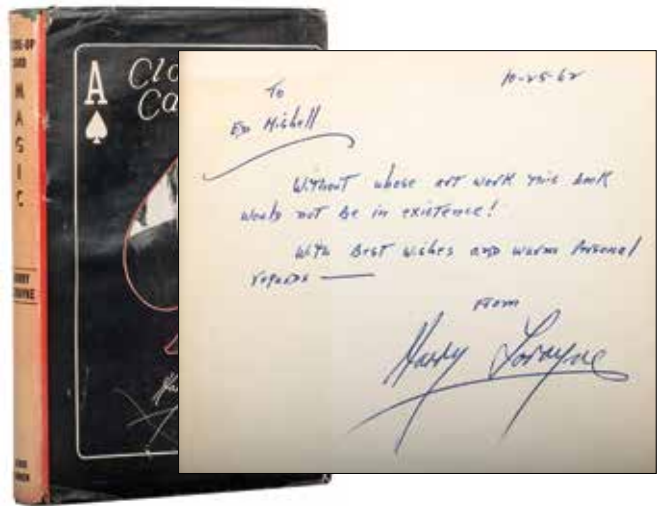 CLOSE-UP
CARD
MAGIC
HARRY
LORAYNE
A
Clo
Ca
10-25-62
To
Ed Mishell
Without whose art work this book
would not be in existence!
With Best wishes and warm Personal
regards —
From
Harry Lorayne